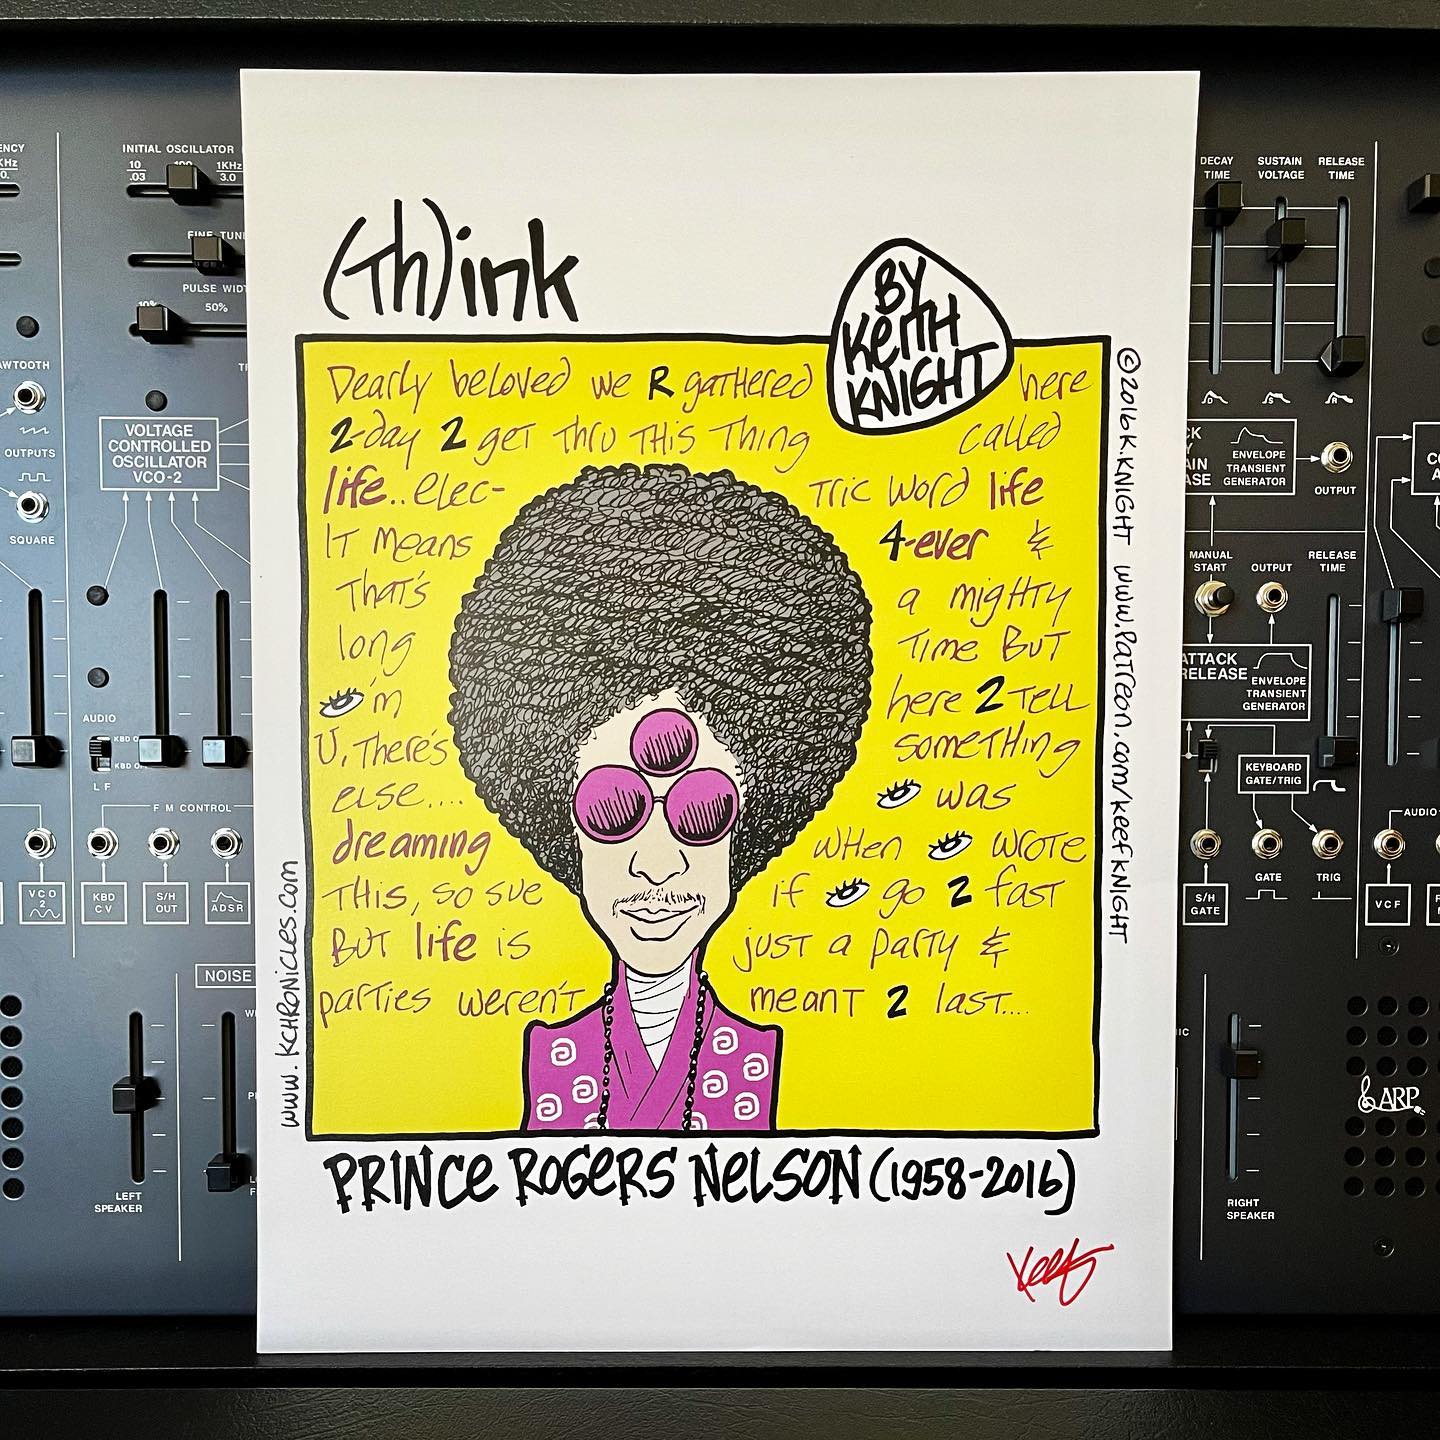 (Th)ink
BY
Keith
KNIGHT
Dearly beloved we R gathered here
2-day 2 get thru this thing called
life..elec- tric word life
It means 4-ever &
that's a mighty
long time But
'm here 2 tell
U, there's something
else.... was
dreaming when wrote
this, so sue if go 2 fast
But life is just a party &
parties weren't meant 2 last....
PRINCE ROGERS NELSON (1958-2016)
Keef
www.Kchronicles.com
©2016 K.KNIGHT www.Patreon.com/keefknight
INITIAL OSCILLATOR
10 100 1KHz
.03 3.0
FINE TUN
PULSE WIDT
10% 50%
AWTOOTH
OUTPUTS
SQUARE
VOLTAGE
CONTROLLED
OSCILLATOR
VCO-2
AUDIO
KBD ON
LF
FM CONTROL
VCO
2
KBD
CV
S/H
OUT
ADSR
NOISE
LEFT
SPEAKER
DECAY
TIME
SUSTAIN
VOLTAGE
RELEASE
TIME
D
S
R
CK
AIN
ASE
ENVELOPE
TRANSIENT
GENERATOR
OUTPUT
MANUAL
START
OUTPUT
RELEASE
TIME
ATTACK
RELEASE
ENVELOPE
TRANSIENT
GENERATOR
KEYBOARD
GATE/TRIG
S/H
GATE
GATE
TRIG
AUDIO
VCF
ARP
RIGHT
SPEAKER